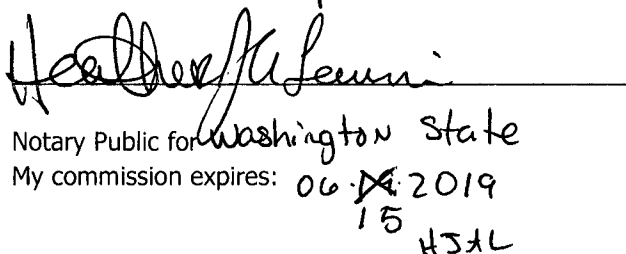 Heather J A
Notary Public for Washington State
My commission expires: 06 . . 2019
15
HJAL